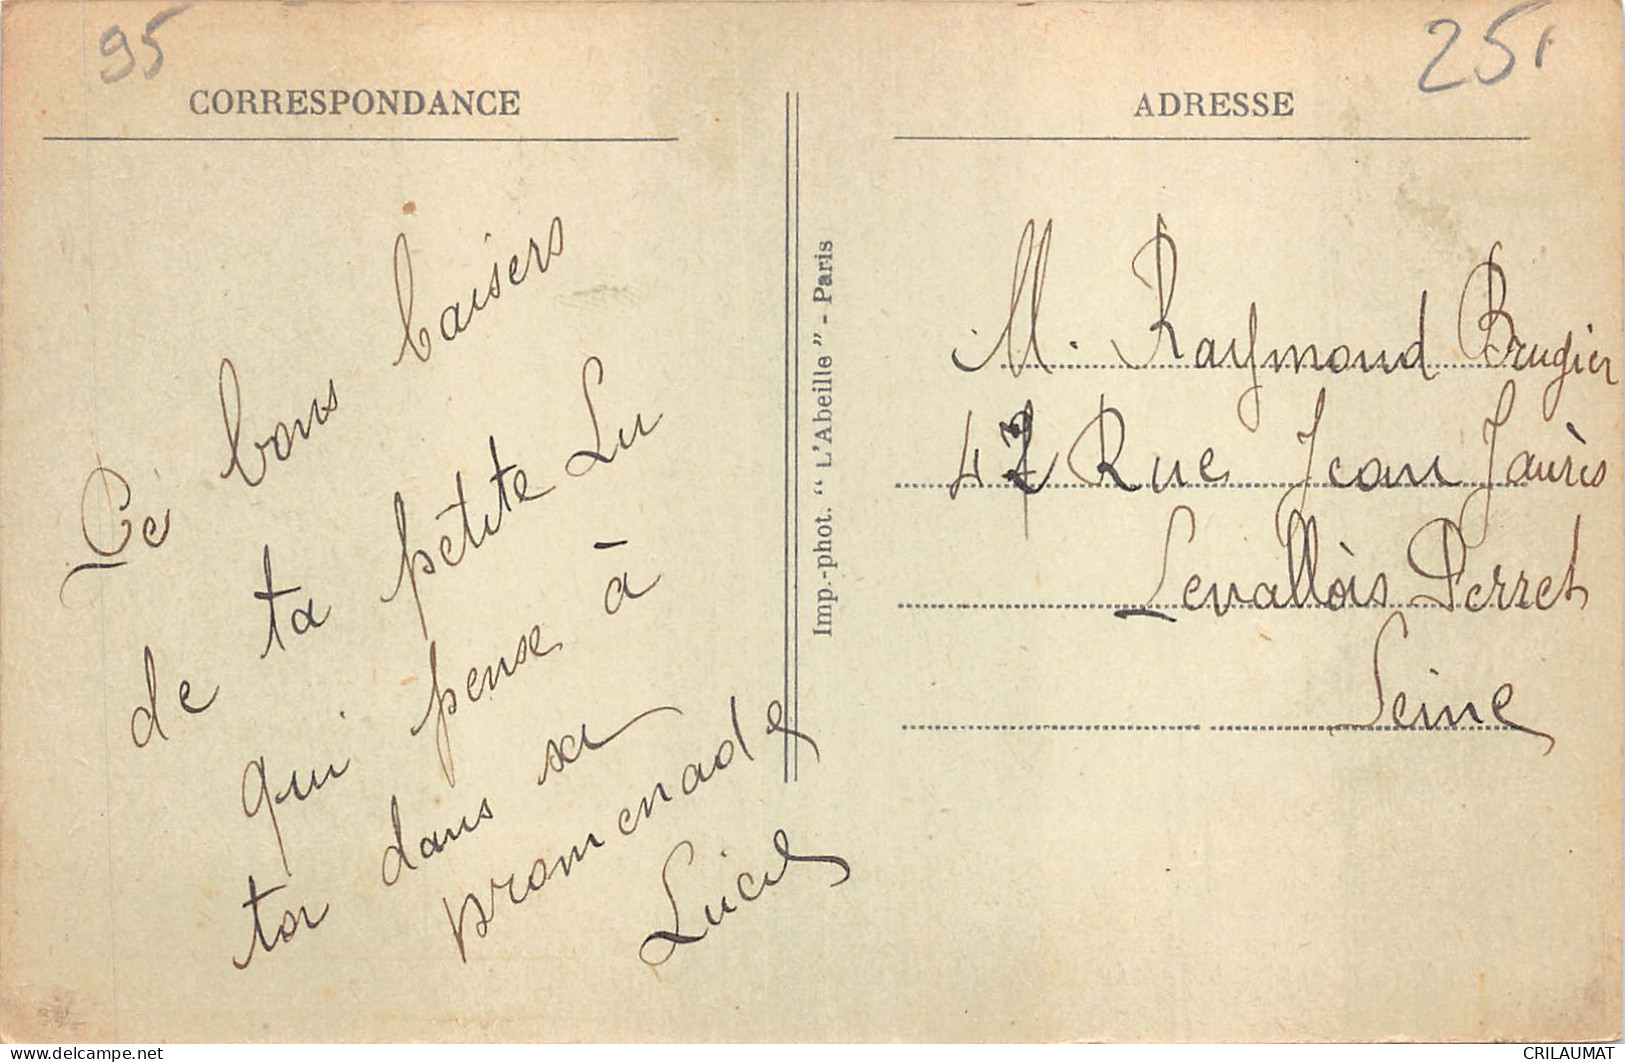 95
25
CORRESPONDANCE
De bons baisers
de ta petite Lu
qui pense à
toi dans sa
promenade
Lucie
Imp.-phot. “ L'Abeille ” - Paris
ADRESSE
M. Raymond Brugier
47 Rue Jean Jaurès
Levallois Perret
Seine
CRILAUMAT
delcampe.net